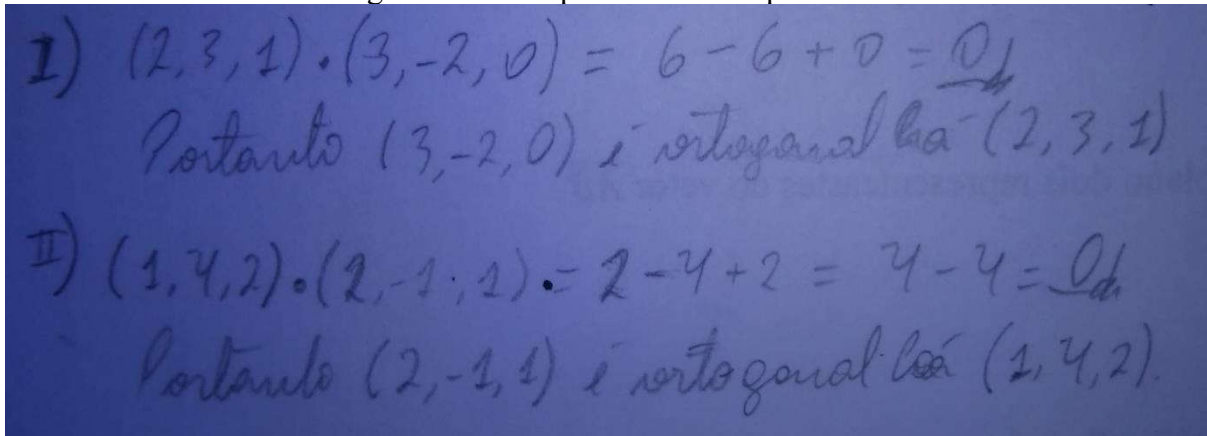 I) (2,3,1)·(3,-2,0) = 6 - 6 + 0 = 0
Portanto (3,-2,0) é ortogonal á (2,3,1)
II) (1,4,2)·(2,-1,1) = 2 - 4 + 2 = 4 - 4 = 0
Portanto (2,-1,1) é ortogonal á (1,4,2).